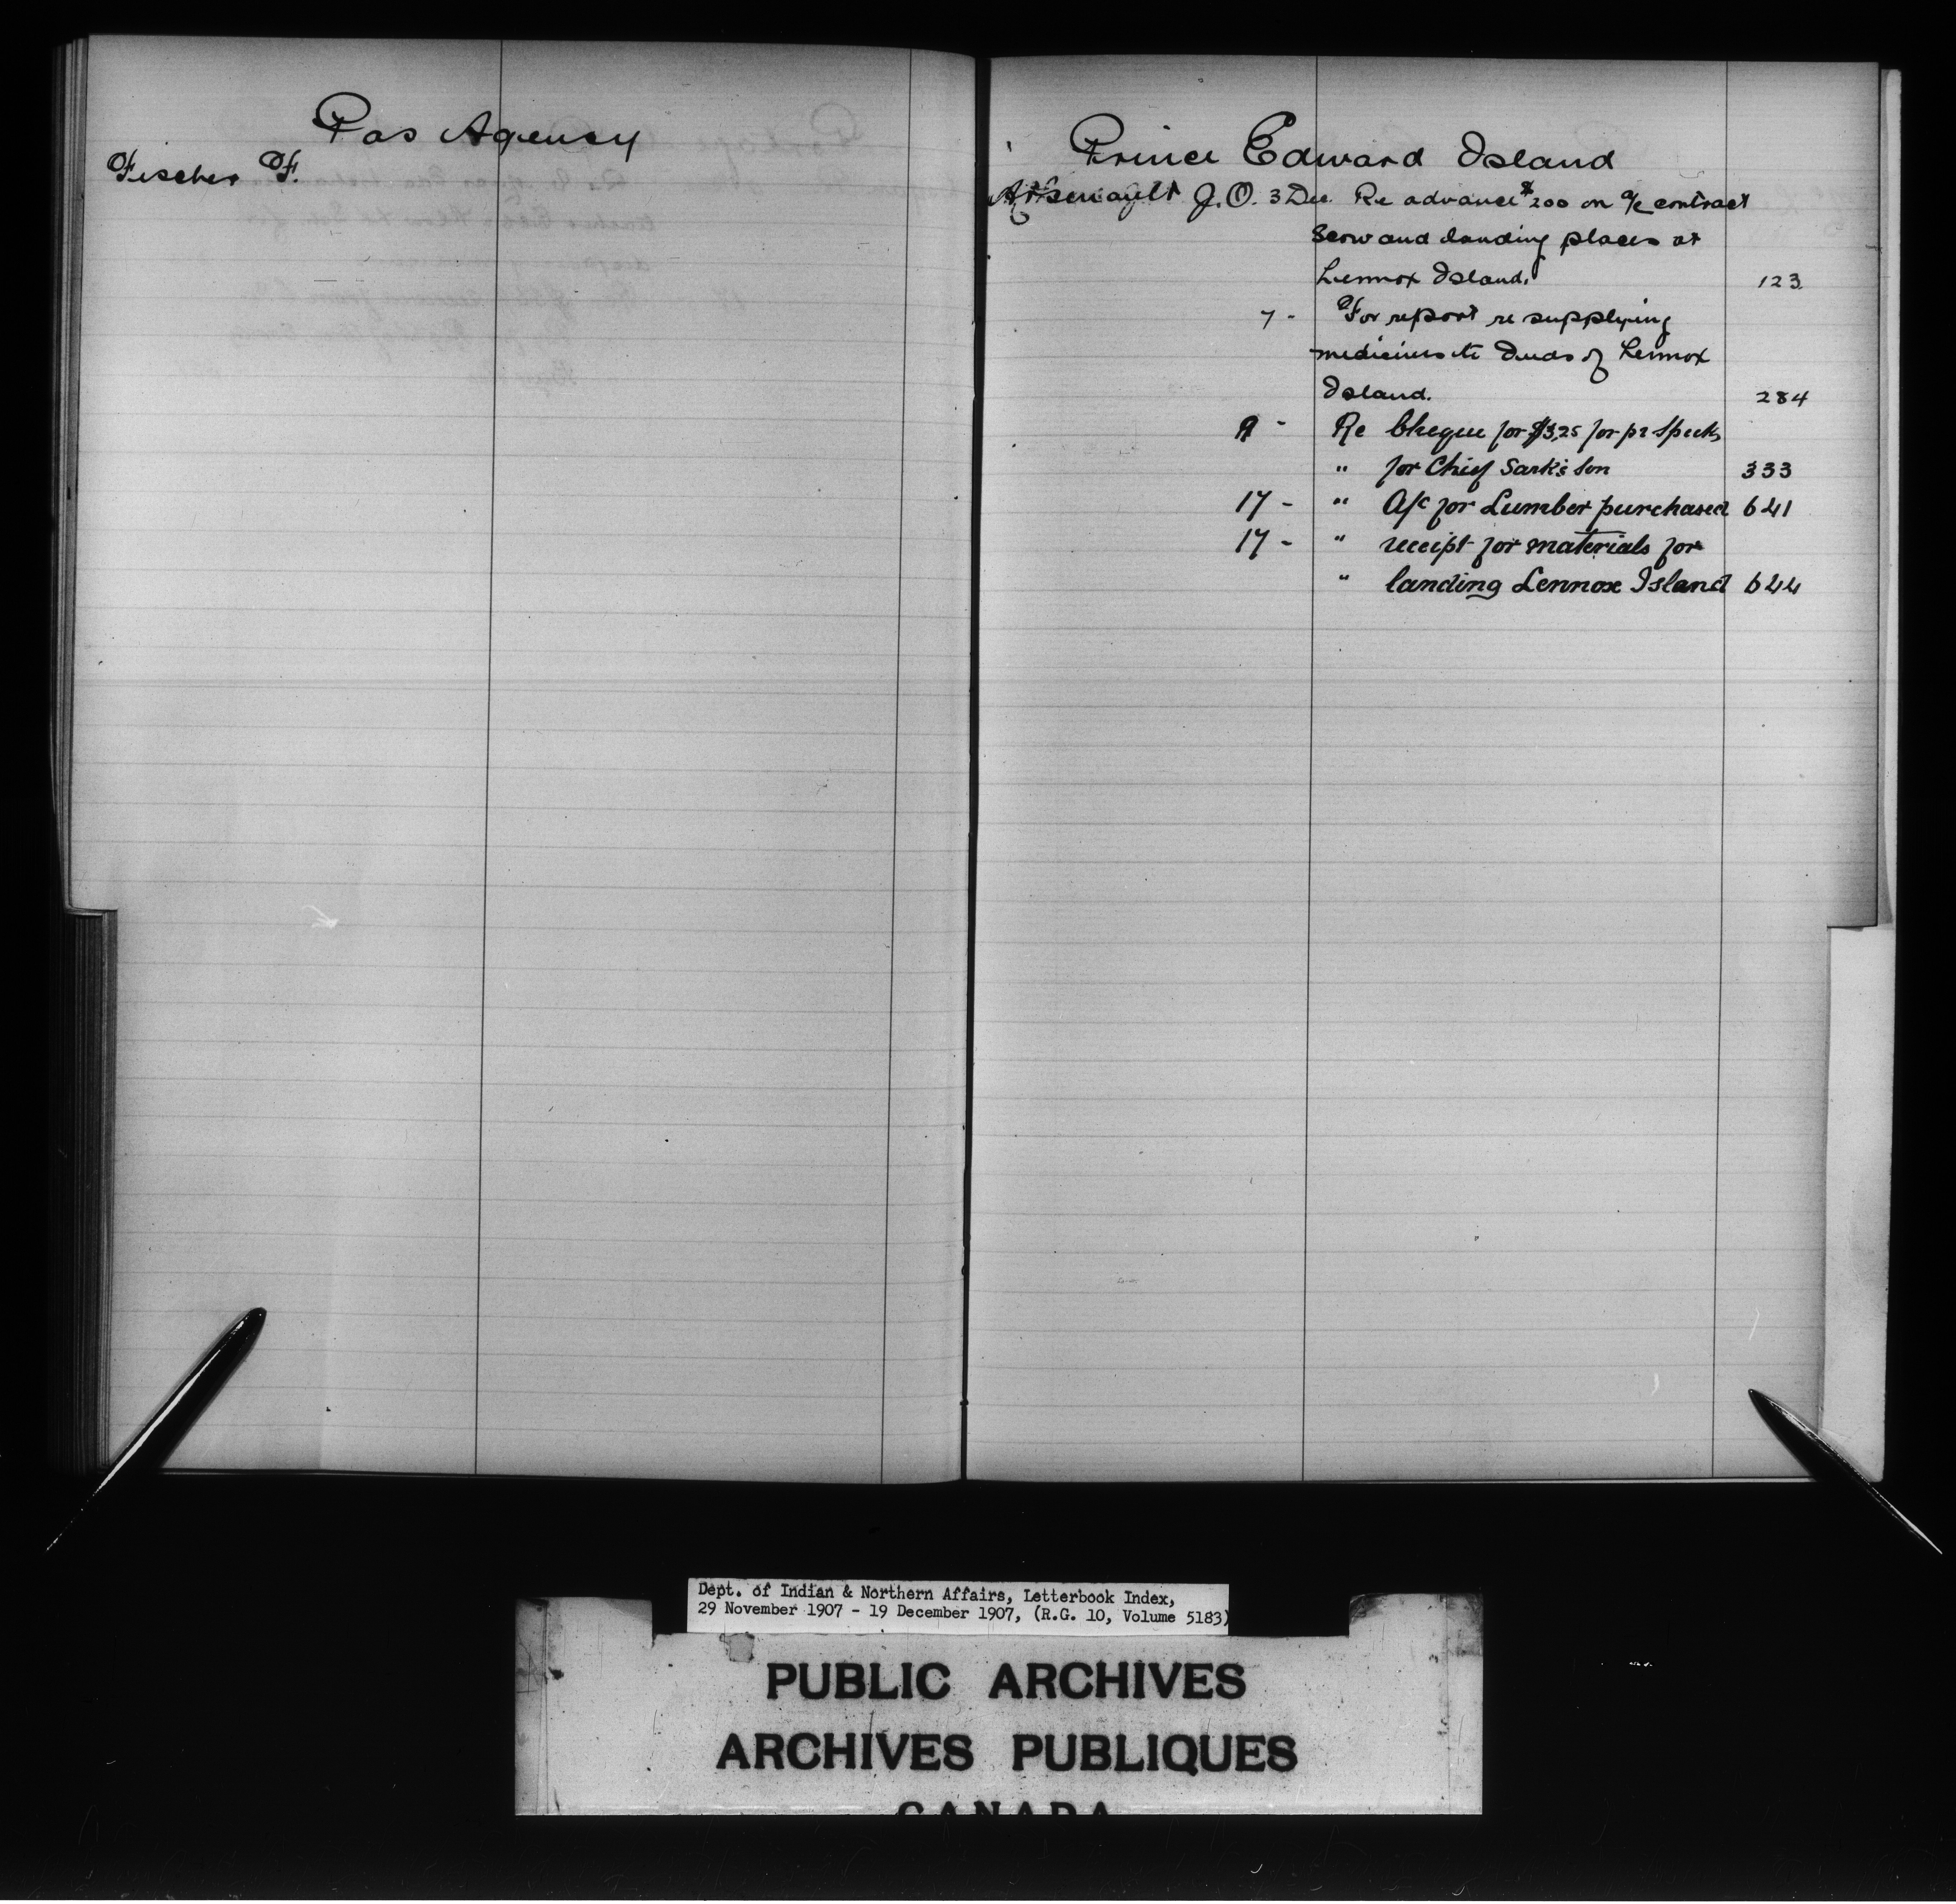 Pas Agency
Fischer F.
Prince Edward Island
Arsenault J.O. 3 Dec. Re advance $200 on a/c contract
Scow and landing places at
Lennox Island. 123
7 - For report re supplying
medicines to Inds of Lennox
Island. 284
9 - Re Cheque for $3,25 for pr Specks
" for Chief Sark's Son 333
17 - " A/c for Lumber purchased 641
17 - " receipt for materials for
" landing Lennox Island 644
Dept. of Indian & Northern Affairs, Letterbook Index,
29 November 1907 - 19 December 1907, (R.G. 10, Volume 5183)
PUBLIC ARCHIVES
ARCHIVES PUBLIQUES
CANADA